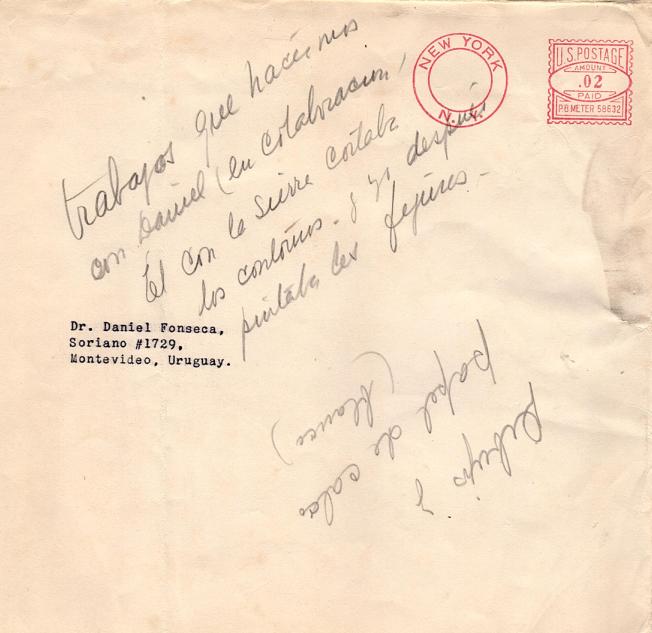 NEW YORK
N.Y.
U.S.POSTAGE
AMOUNT
.02
PAID
P.B.METER 58632
trabajos que hacíamos
con Daniel (en colaboracion,
Él con la Sierra cortaba
los contornos - y yo después
pintaba las figuras -
Dr. Daniel Fonseca,
Soriano #1729,
Montevideo, Uruguay.
Dibujo y
papel de
(blanco)